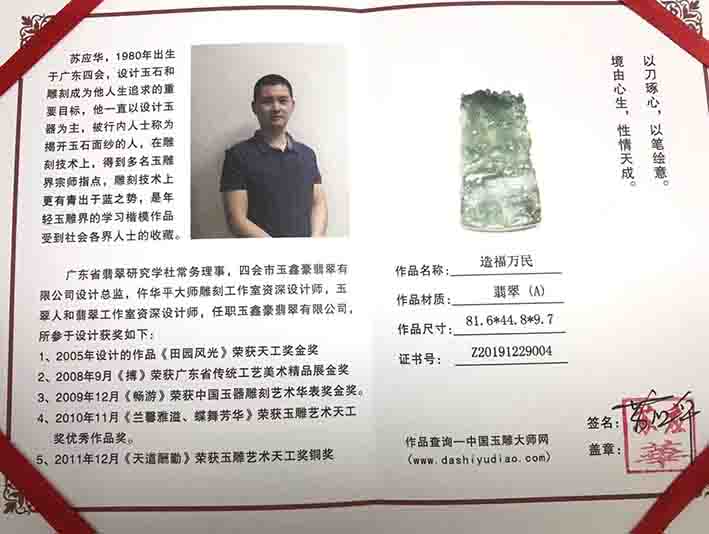 苏应华，1980年出生
于广东四会，设计玉石和
雕刻成为他人生追求的重
要目标，他一直以设计玉
器为主，被行内人士称为
揭开玉石面纱的人，在雕
刻技术上，得到多名玉雕
界宗师指点，雕刻技术上
更有青出于蓝之势，是年
轻玉雕界的学习楷模作品
受到社会各界人士的收藏。
广东省翡翠研究学社常务理事，四会市玉鑫豪翡翠有
限公司设计总监，仵华平大师雕刻工作室资深设计师，玉
翠人和翡翠工作室资深设计师，任职玉鑫豪翡翠有限公司，
所参于设计获奖如下：
1、2005年设计的作品《田园风光》荣获天工奖金奖
2、2008年9月《搏》荣获广东省传统工艺美术精品展金奖
3、2009年12月《畅游》荣获中国玉器雕刻艺术华表奖金奖。
4、2010年11月《兰馨雅溢、蝶舞芳华》荣获玉雕艺术天工
奖优秀作品奖。
5、2011年12月《天道酬勤》荣获玉雕艺术天工奖铜奖
以刀琢心，以笔绘意。
境由心生，性情天成。
作品名称：造福万民
作品材质：翡翠（A）
作品尺寸：81.6*44.8*9.7
证书号：Z20191229004
作品查询—中国玉雕大师网
（www.dashiyudiao.com）
签名：
盖章：